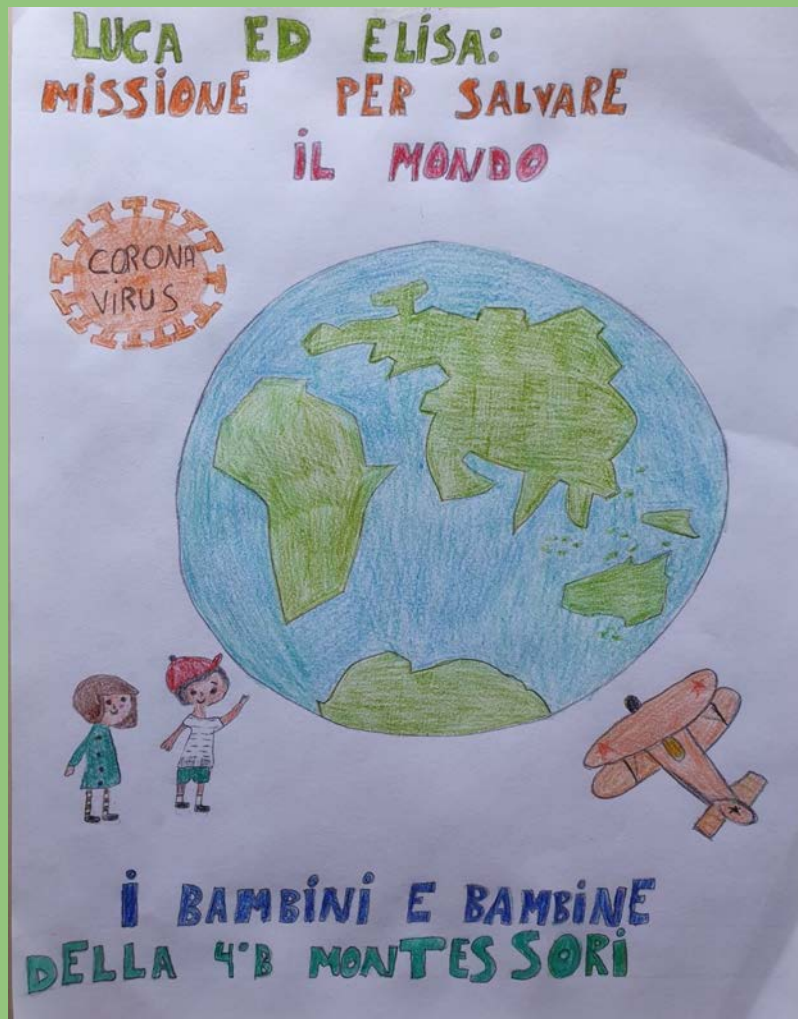 LUCA ED ELISA:
MISSIONE PER SALVARE
IL MONDO
CORONA
VIRUS
I BAMBINI E BAMBINE
DELLA 4°B MONTESSORI